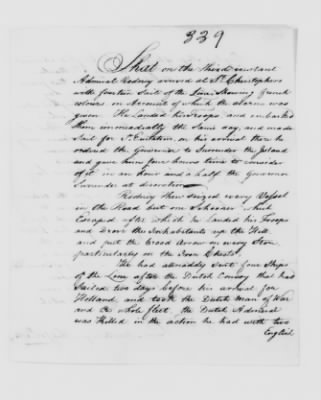 339
That on the third instant
Admiral Rodney arrived at St. Christophers
with fourteen Sail of the Line Shewing french
colours on Account of which the alarm was
given. He Landed his Troops and embarked
them immediately the Same day, and made
Sail for St. Eustatia, on his arrival there he
ordered the Governor to Surrender the Island
and gave him four hours time to consider
of it in an hour and a half the Governor
Surrender at discretion
Rodney then seized every Vessel
in the Road but one Schooner which
Escaped after which he landed his Troops
and Drove the Inhabitants up the Hill
and put the Broad Arrow on every Store
particularly on the Iron Chests.
He had already Sent four Ships
of the Line after the Dutch Convoy that had
Sailed two days before his arrival for
Holland, and took the Dutch Man of War
and the whole fleet, the Dutch Admiral
was Killed in the action he had with two
English